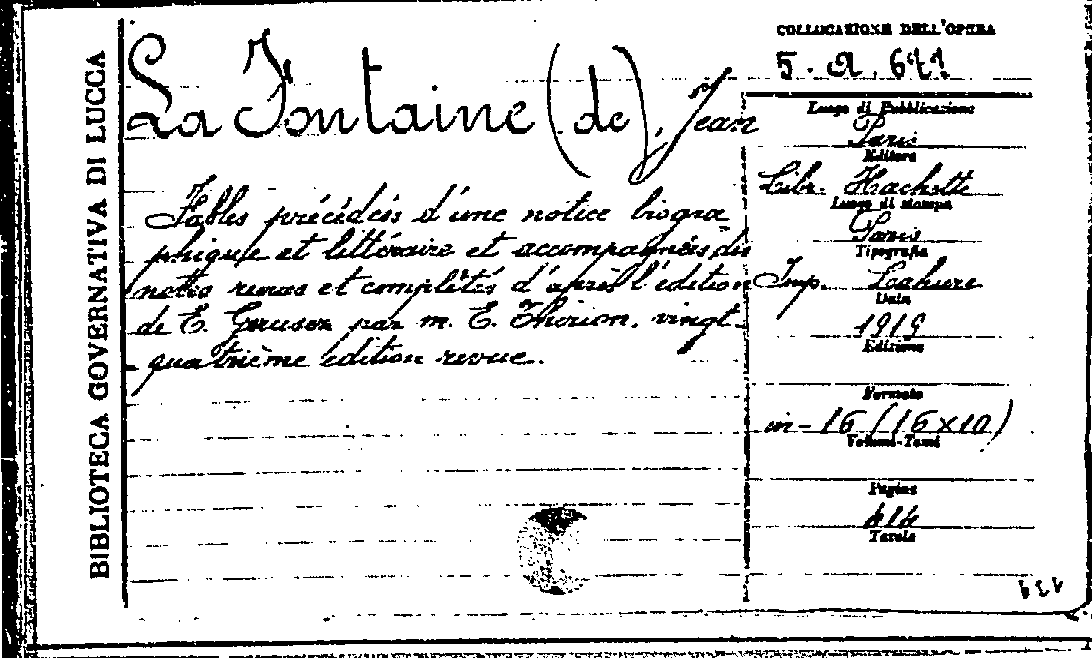 BIBLIOTECA GOVERNATIVA DI LUCCA
La Fontaine (de), Jean
Fables précédés d'une notice biogra
phique et littéraire et accompagnées des
notes revues et complétés d'après l'édition
de E. Geruser par m. E. Thirion. vingt-
quatrième edition revue.
COLLOCAZIONE DELL'OPERA
5. A. 671
Luogo di Pubblicazione
Paris
Editore
Libr. Hachette
Luogo di stampa
Paris
Tipografia
Imp. Lahure
Data
1919
Edizione
Formato
in-16 (16x10)
Volumi-Tomi
Pagine
414
Tavole